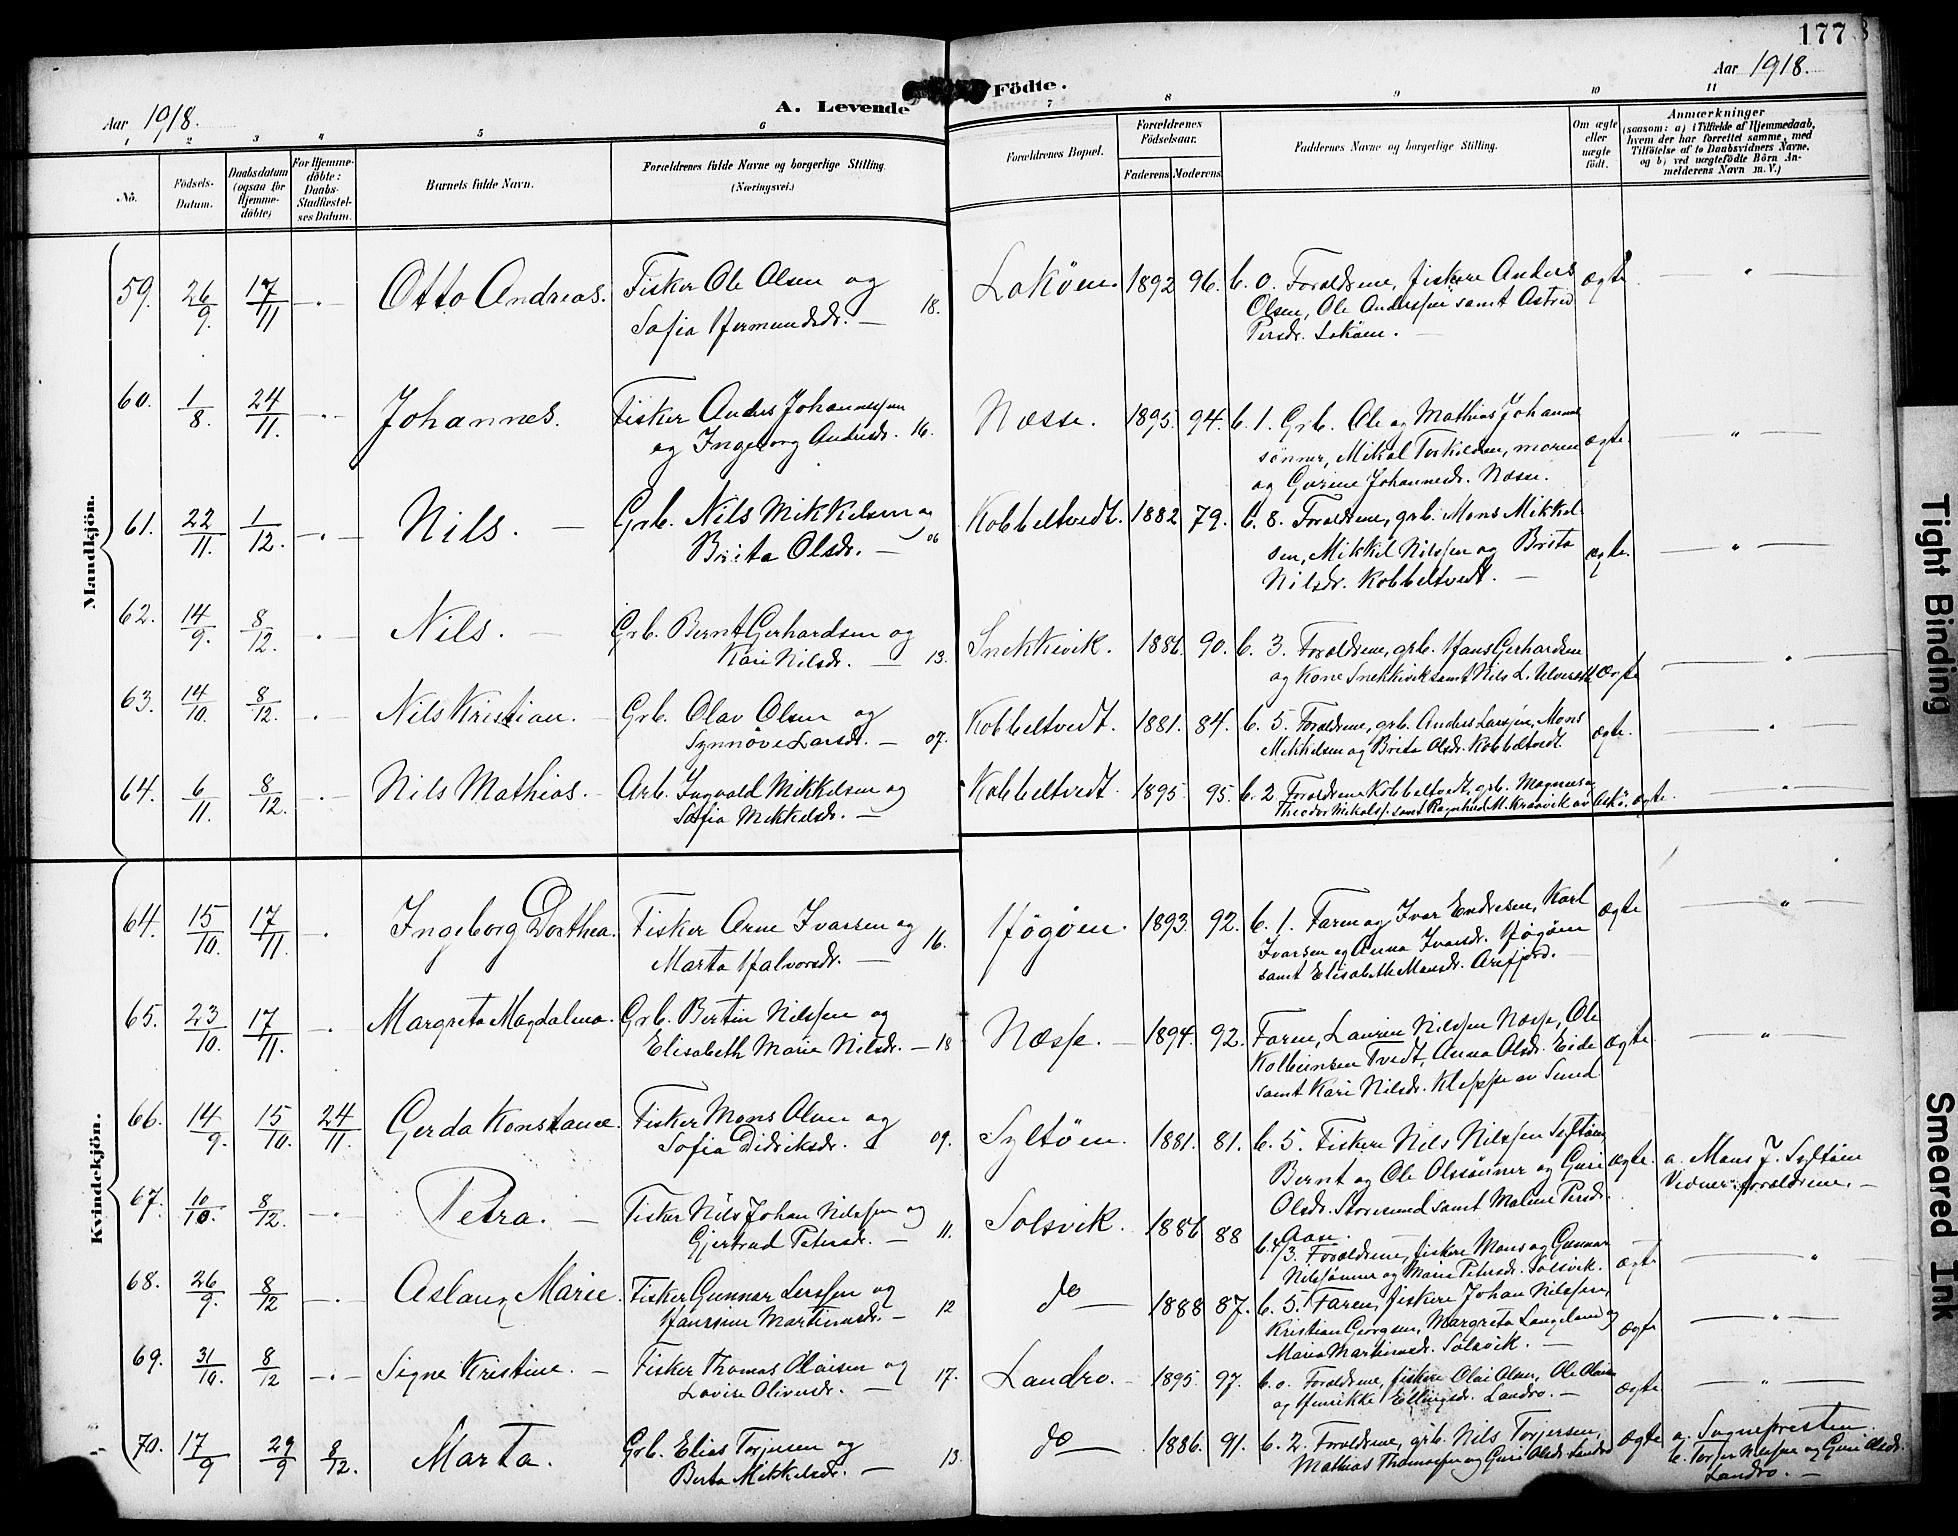 177
Aar 1918.
A. Levende Födte.
Aar 1918.
1 2 3 4 5 6 7 8 9 10 11
No.
Födsels-Datum.
Daabsdatum (ogsaa for Hjemmedöbte)
For Hjemmedöbte: Daabs-Stadfæstelses Datum.
Barnets fulde Navn.
Forældrenes fulde Navne og borgerlige Stilling. (Næringsvei.)
Forældrenes Bopæl.
Forældrenes Födselsaar.
Faderens Moderens
Faddernes Navne og borgerlige Stilling.
Om ægte eller uægte födt.
Anmærkninger
(saasom: a) i Tilfælde af Hjemmedaab, hvem der har forrettet samme, med Tilföielse af to Daabsvidners Navne, og b) ved uægtefödte Börn Anmelderens Navn m. V.)
Mandkjön.
59. 26/9 17/11 Otto Andreas. Fisker Ole Olsen og
Sofia Hermundsdr. — 18. Lokøen. 1892 96. b. 0. Forældrene, fiskere Anders
Olsen, Ole Anderssen samt Astrid
Persdr. Lokøen. — ægte — " —
60. 1/8 24/11. Johannes. Fisker Anders Johannessen
og Ingeborg Andersdr. 16. Næsse. 1895. 94. b. 1. Grb. Ole og Mathias Johannes
sønner, Mikal Terkildsen, moren
og Gurine Johannesdr. Næsse. ægte. — " —
61. 22/11. 1/12. Nils. — Grb. Nils Mikkelsen og
Brita Olsdr. — 06 Kobbeltvedt. 1882 79. b. 8. Forældrene, grb. Mons Mikkel
sen, Mikkel Nilssen og Brita
Nilsdr. Kobbeltvedt. — ægte. — " —
62. 14/9. 8/12. Nils. — Grb. Bernt Gerhardsen og
Kari Nilsdr. — 13. Snekkevik. 1886. 90. b. 3. Forældrene, grb. Hans Gerhardsen
og Kone Snekkevik samt Nils L. ægte — " —
63. 14/10. 8/12. Nils Kristian. — Grb. Olav Olsen og
Synnøve Larsdr. — 07. Kobbeltvedt. 1881. 84. b. 5. Forældrene, grb. Anders Larssen, Mons
Mikkelsen og Brita Olsdr. Kobbeltvedt. ægte. — " —
64. 6/11. 8/12. Nils Mathias. — Arb. Ingvald Mikkelsen og
Sofia Mikkelsdr. — Kobbeltvedt. 1895 95. b. 2. Forældrene Kobbeltvedt, grb. Magnus og
Theodor Mikals. samt Ragnhild M. av Askø. ægte. — " —
Kvindekjön.
64. 15/10. 17/11. Ingeborg Dorthea. Fisker Arne Ivarsen og
Marta Halvorsdr. — 16. Høgøen. 1893. 92. b. 1. Faren og Ivar Endresen, Karl
Ivarsen og Anna Ivarsdr. Høgøen
samt Elisabeth Monsdr. Arefjord. — ægte — " —
65. 23/10. 17/11. Margreta Magdalena. Grb. Bertin Nilssen og
Elisabeth Marie Nilsdr. — 18 Næsse. — 1894. 92. Faren, Laurin Nilssen Næsse, Ole
Kolbeinsen Tvedt, Anna Olsdr. Eide
samt Kari Nilsdr. Kleppe av Sund ægte — " —
66. 14/9. 15/10. 24/11. Gerda Konstanse. Fisker Mons Olsen og
Sofia Didriksdr. — 09. Syltøen. 1881. 81. b. 5. Fiskere Nils Nilssen Syltøen,
Bernt og Ole Olssønner og Guri
Olsdr. Storesund samt Malene Persdr.
Aase. — ægte. a. Mons J. Syltøen
Vidner: forældrene. —
67. 10/10. 8/12. Petra. — Fisker Nils Johan Nilssen og
Gjertrud Petersdr. — 11. Solsvik. 1886 88 b. 4/3. Forældrene, fiskere Mons og Gunnar
Nilssønner og Marie Petersdr. Solsvik. ægte — " —
68. 26/9. 8/12 Aslaug Marie. Fisker Gunnar Larssen og
Hansine Martinusdr. — 12 do — 1888 87. b. 5. Faren, fiskere Johan Nilssen,
Kristian Georgsen, Margreta Langeland og
Maria Martinusdr. Solsvik. — ægte — " —
69. 31/10. 8/12 Signe Kristine. — Fisker Thomas Olaisen og
Lovise Oliversdr. — 17. Landro. — 1895. 97. b. 0. Forældrene, fiskere Olai Olsen, Ole Olaisen
og Henrikke Ellingsdr. Landro. — ægte — " —
70. 17/9 29/9 8/12. Marta. Grb. Elias Torjersen og
Berta Mikkelsdr. — 13. do — 1886. 91. b. 2. Forældrene, grb. Nils Torjersen,
Mathias Thomassen og Guri Olsdr. Landro ægte a. Sognepresten.
b. Torjer Nilssen og Guri Olsdr.
Landro. —
Tight Binding
Smeared Ink